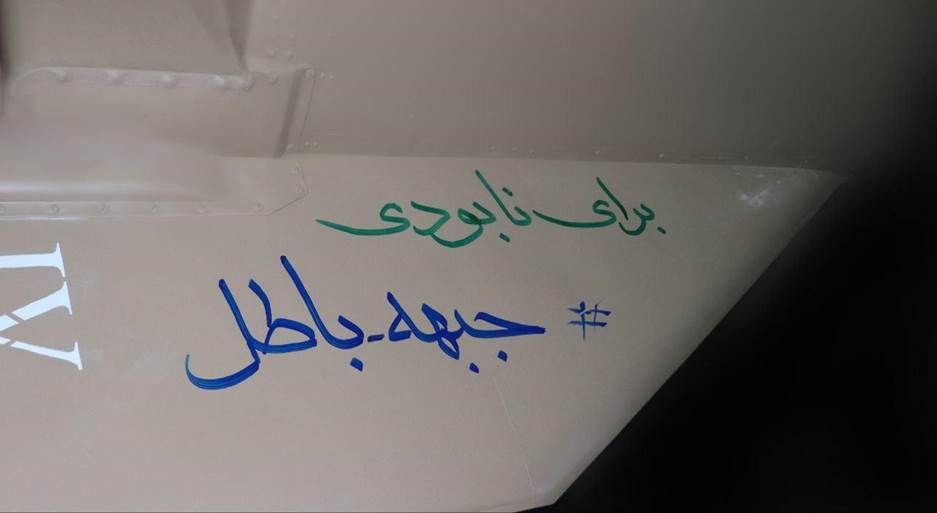 برای نابودی
# جبهه_باطل